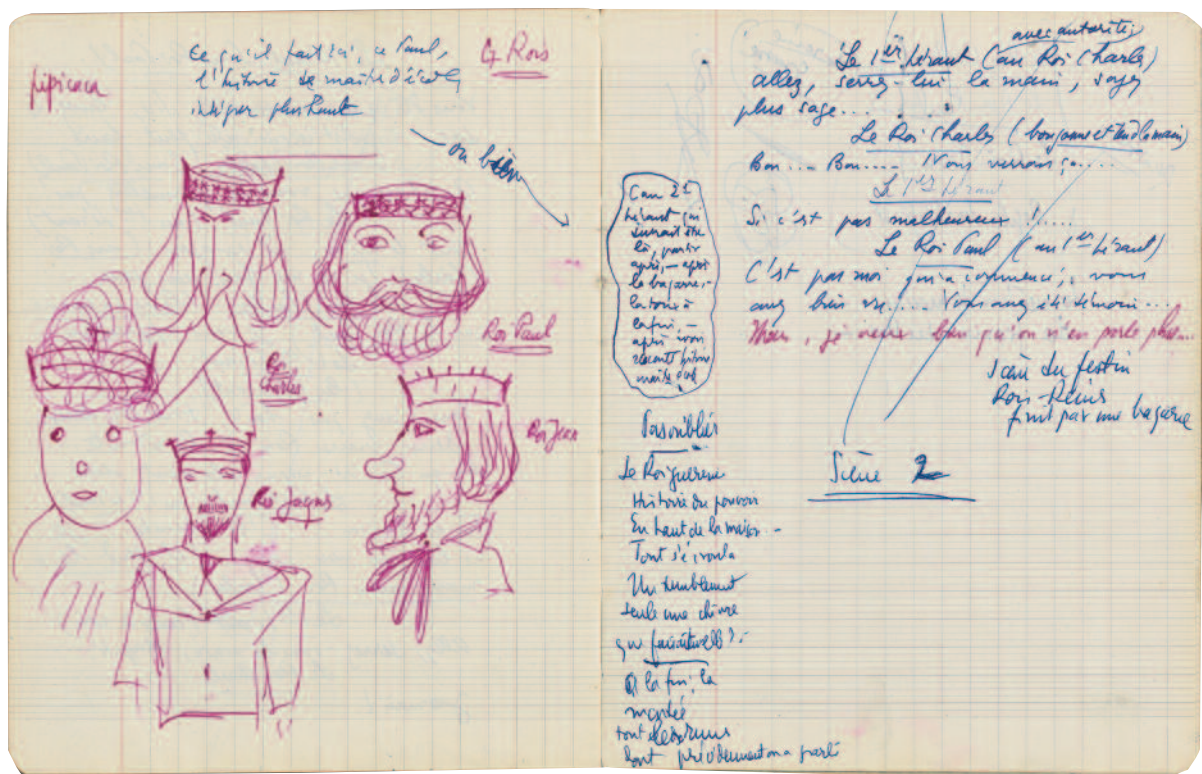 pipicaca
Ce qu'il fait ici, ce Paul,
l'histoire de maître d'école,
intégrer plus haut
4 Rois
ou bien
Roi Charles
Roi Paul
Roi Jean
Roi Jacques
(au 2e
héraut qui
devrait être
là, partir
après, – après
la bagarre, –
la fin, –
après avoir
raconté histoire
Pas oublier
Le Roi guerrier
Histoire du pouvoir
En haut de la maison –
Tout s'écroula
Un tremblement
seule une chèvre
que faisait-elle ? –
A la fin, la
montée
tout
dont précédemment on a parlé
avec autorité)
Le 1er héraut (au Roi Charles)
allez, serrez-lui la main, soyez
plus sage....
Le Roi Charles (bougonne et tend la main)
Bon.... Bon.... Nous verrons ça....
Le 1er héraut
Si c'est pas malheureux !.....
Le Roi Paul (au 1er héraut)
C'est pas moi qui a commencé, vous
avez bien vu.... Vous avez été témoin...
Mais, je veux bien qu'on n'en parle plus...
Scène du festin
Rois-Reines
finit par une bagarre
Scène 2